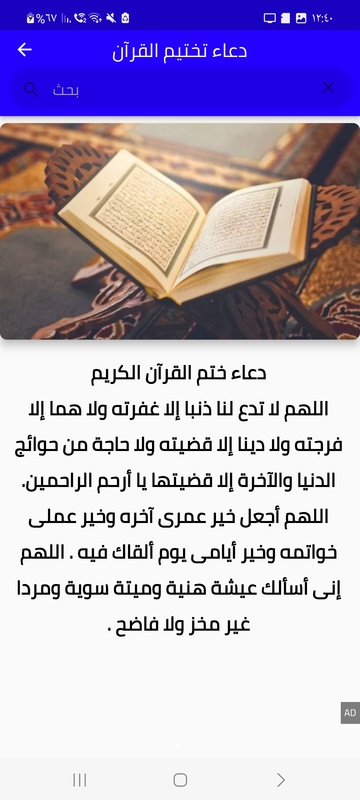 %٦٧ ١٢:٤٠
دعاء تختيم القرآن
بحث
دعاء ختم القرآن الكريم
اللهم لا تدع لنا ذنبا إلا غفرته ولا هما إلا
فرجته ولا دينا إلا قضيته ولا حاجة من حوائج
الدنيا والآخرة إلا قضيتها يا أرحم الراحمين.
اللهم أجعل خير عمرى آخره وخير عملى
خواتمه وخير أيامى يوم ألقاك فيه . اللهم
إنى أسألك عيشة هنية وميتة سوية ومردا
غير مخز ولا فاضح .
AD